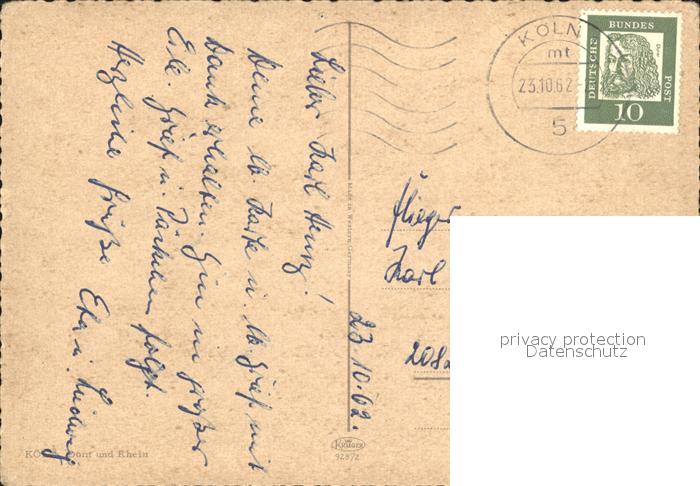 Lieber Karl Heinz!
Deine lb. Karte u. lb. Brief mit
Dank erhalten. Hier in großer
Eile. Brief u. Päckchen folgt.
Herzliche Grüße Eha u. Ludwig
23.10.62.
Flieger
Karl
2082
KÖLN
mt
23.10.62
5
DEUTSCHE BUNDES POST
Dürer
10
Made in Western-Germany
privacy protection
Datenschutz
KÖLN Dom und Rhein
KRÜGER
928/2